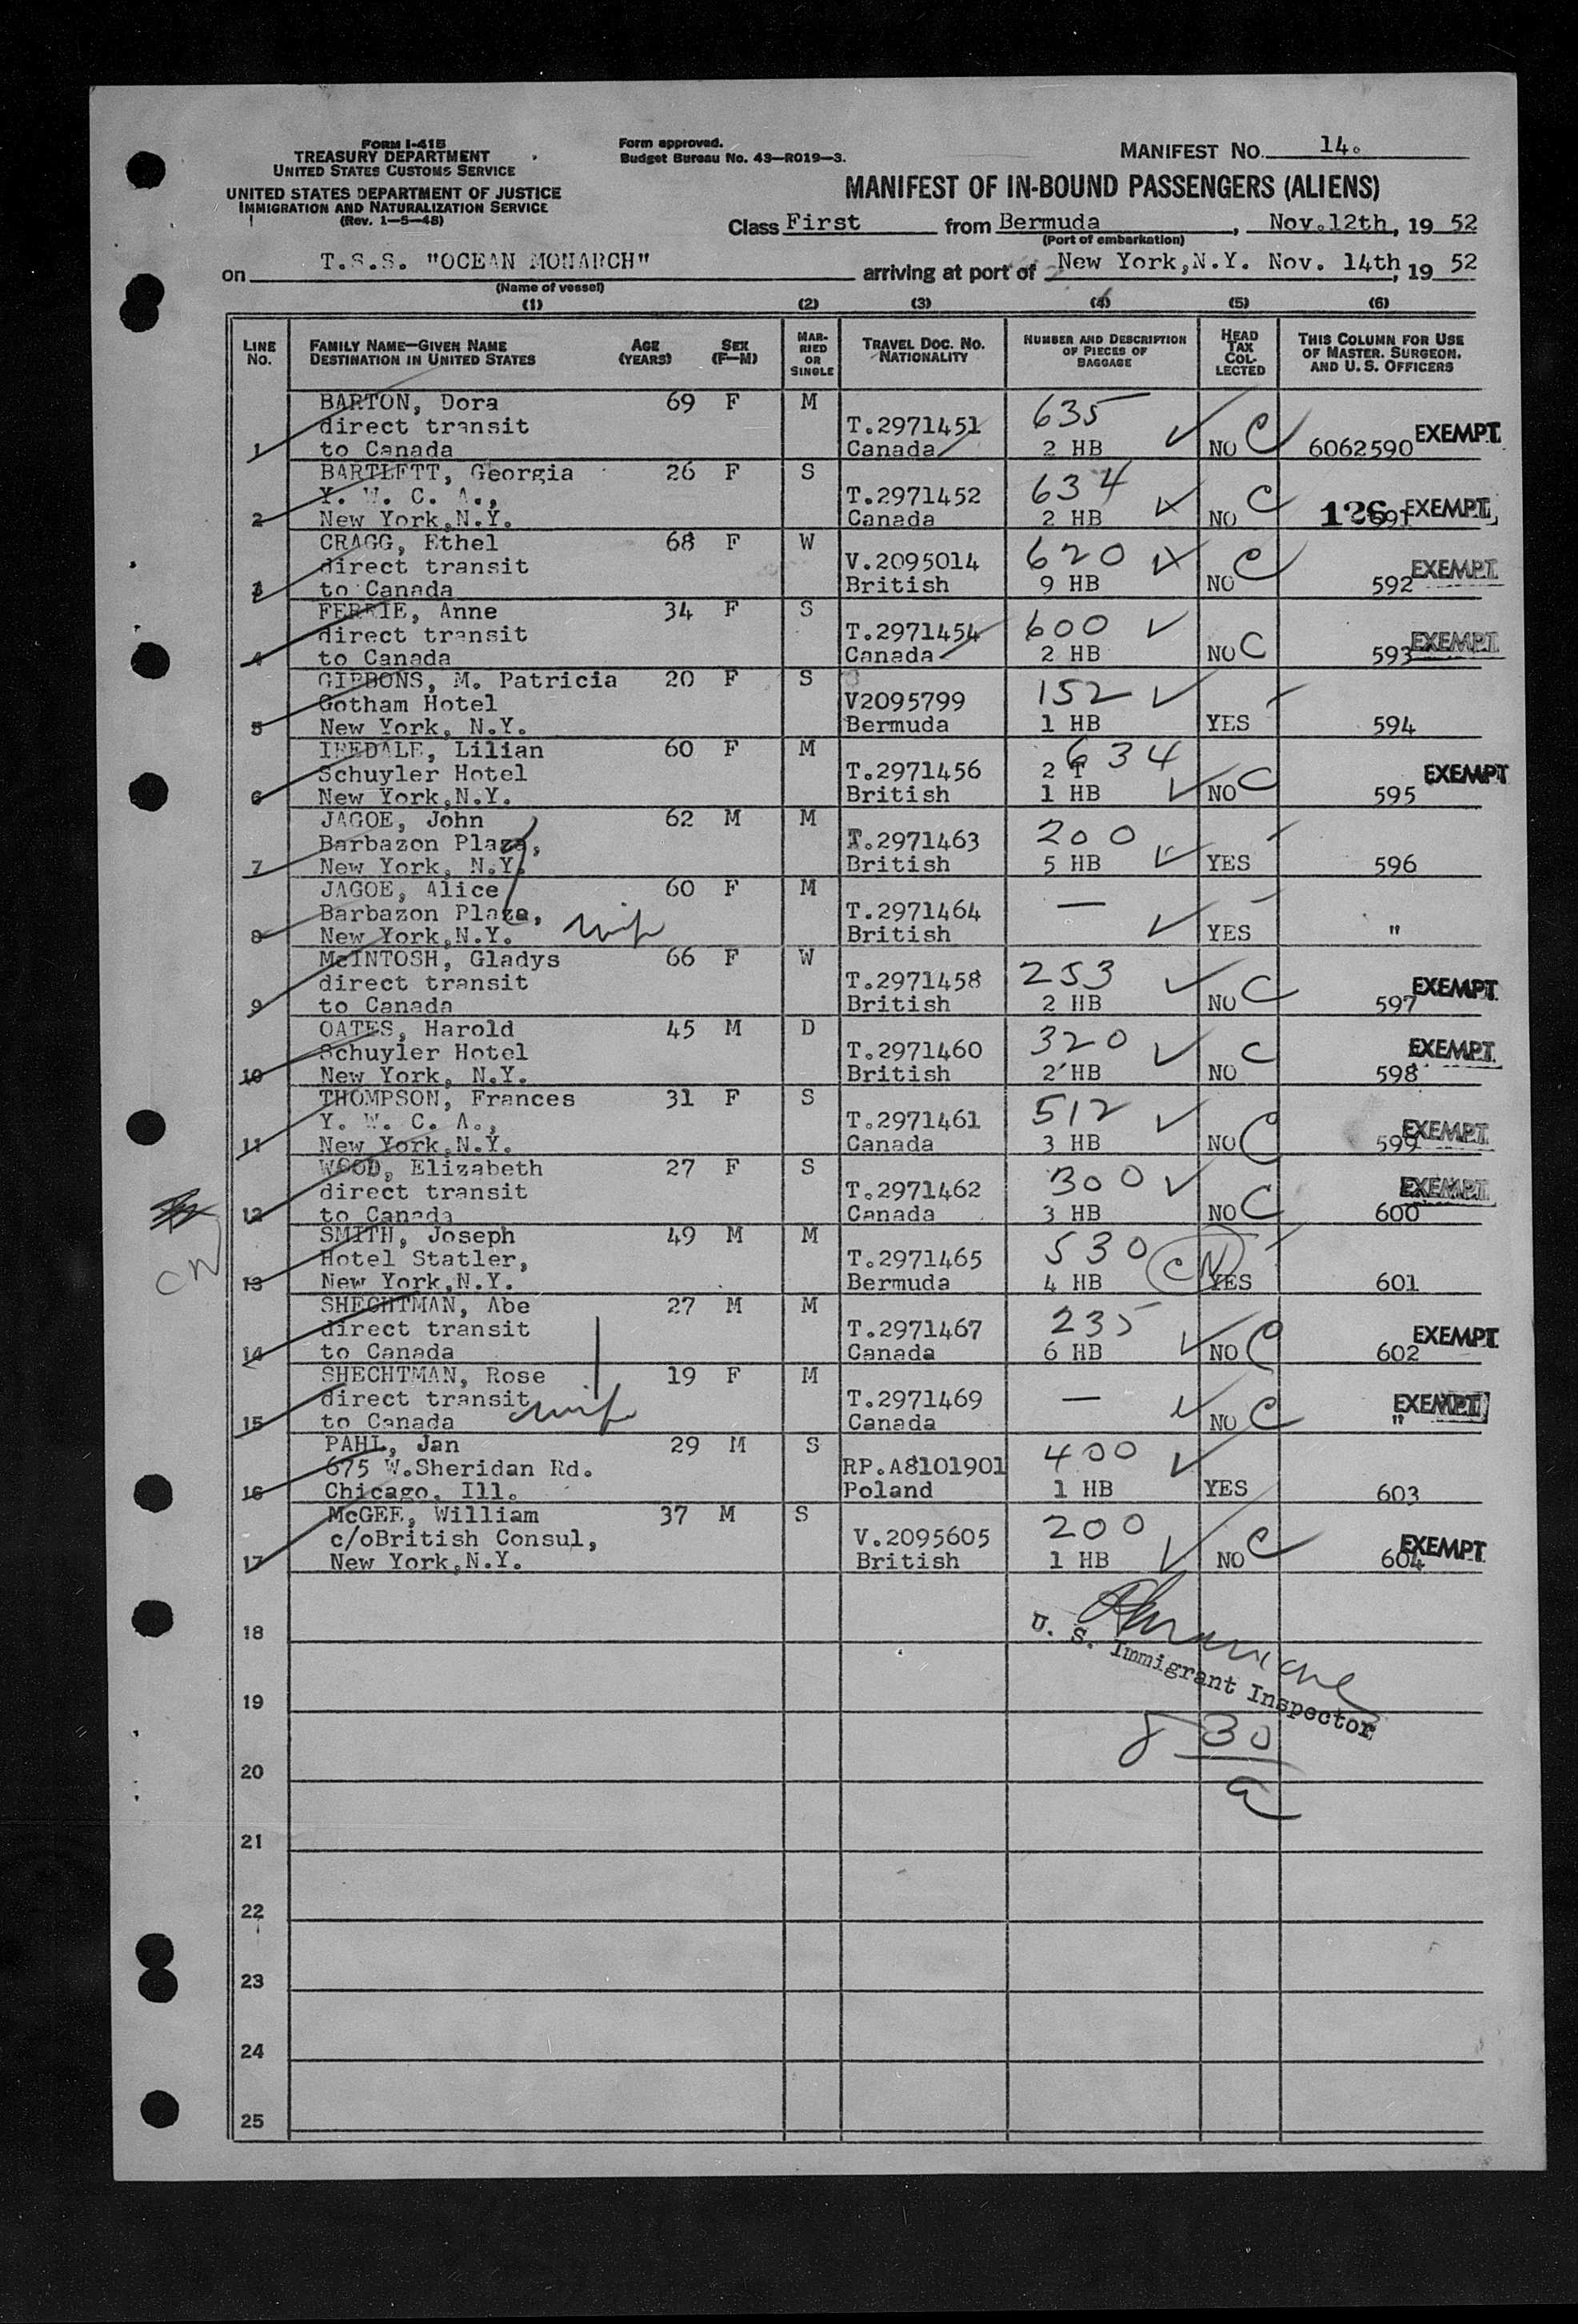 FORM I-415
TREASURY DEPARTMENT
UNITED STATES CUSTOMS SERVICE
UNITED STATES DEPARTMENT OF JUSTICE
IMMIGRATION AND NATURALIZATION SERVICE
(Rev. 1—5—48)
Form approved.
Budget Bureau No. 43—R019—3.
MANIFEST NO. 14.
MANIFEST OF IN-BOUND PASSENGERS (ALIENS)
Class First from Bermuda, Nov.12th, 19 52
(Port of embarkation)
on T.S.S. "OCEAN MONARCH" arriving at port of New York,N.Y. Nov. 14th, 19 52
(Name of vessel)
(1) (2) (3) (4) (5) (6)
LINE NO. FAMILY NAME—GIVEN NAME DESTINATION IN UNITED STATES AGE (YEARS) SEX (F—M) MARRIED OR SINGLE TRAVEL DOC. NO. NATIONALITY NUMBER AND DESCRIPTION OF PIECES OF BAGGAGE HEAD TAX COLLECTED THIS COLUMN FOR USE OF MASTER, SURGEON, AND U. S. OFFICERS
BARTON, Dora 69 F M 635
direct transit T.2971451 EXEMPT
1 to Canada Canada 2 HB NO C 6062590
BARTLETT, Georgia 26 F S 634
Y. W. C. A., T.2971452 C 126 EXEMPT
2 New York,N.Y. Canada 2 HB NO 591
CRAGG, Ethel 68 F W 620
direct transit V.2095014 C EXEMPT
3 to Canada British 9 HB NO 592
FERRIE, Anne 34 F S 600
direct transit T.2971454 EXEMPT
4 to Canada Canada 2 HB NO C 593
GIBBONS, M. Patricia 20 F S 152
Gotham Hotel V2095799
5 New York, N.Y. Bermuda 1 HB YES 594
IREDALE, Lilian 60 F M 634
Schuyler Hotel T.2971456 2 T EXEMPT
6 New York,N.Y. British 1 HB NO C 595
JAGOE, John 62 M M 200
Barbazon Plaza, T.2971463
7 New York, N.Y. British 5 HB YES 596
JAGOE, Alice 60 F M —
Barbazon Plaza, T.2971464
8 New York,N.Y. wife British YES "
McINTOSH, Gladys 66 F W 253
direct transit T.2971458 EXEMPT
9 to Canada British 2 HB NO C 597
OATES, Harold 45 M D 320
Schuyler Hotel T.2971460 C EXEMPT
10 New York, N.Y. British 2 HB NO 598
THOMPSON, Frances 31 F S 512
Y. W. C. A., T.2971461 EXEMPT
11 New York,N.Y. Canada 3 HB NO C 599
WOOD, Elizabeth 27 F S 300
direct transit T.2971462 EXEMPT
12 to Canada Canada 3 HB NO C 600
SMITH, Joseph 49 M M 530
Hotel Statler, T.2971465 CN
CN 13 New York,N.Y. Bermuda 4 HB YES 601
SHECHTMAN, Abe 27 M M 235
direct transit T.2971467 EXEMPT
14 to Canada Canada 6 HB NO C 602
SHECHTMAN, Rose 19 F M —
direct transit T.2971469 EXEMPT
15 to Canada wife Canada NO C "
PAHL, Jan 29 M S 400
675 W.Sheridan Rd. RP.A8101901
16 Chicago, Ill. Poland 1 HB YES 603
McGEE, William 37 M S 200
c/oBritish Consul, V.2095605 EXEMPT
17 New York,N.Y. British 1 HB NO C 604
18
U. S. Immigrant Inspector
19
8 30
20
a
21
22
23
24
25